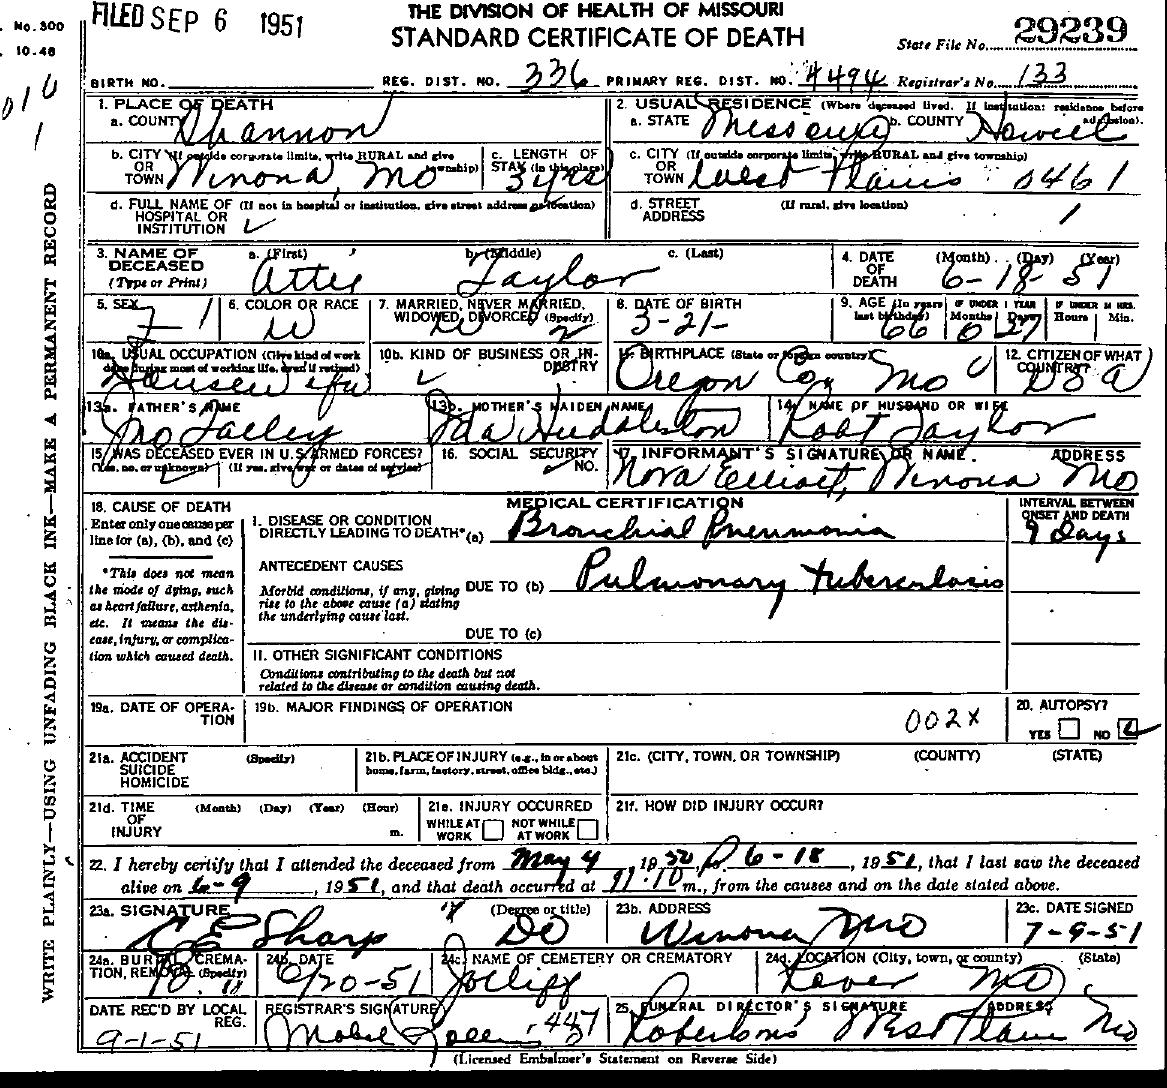 FILED SEP 6 1951
THE DIVISION OF HEALTH OF MISSOURI
STANDARD CERTIFICATE OF DEATH
No. 300
10-48
State File No. 29239
BIRTH NO. REG. DIST. NO. 336 PRIMARY REG. DIST. NO. 4494 Registrar's No. 133
1. PLACE OF DEATH
a. COUNTY Shannon
2. USUAL RESIDENCE (Where deceased lived. If institution: residence before admission).
a. STATE Missouri b. COUNTY Howell
b. CITY (If outside corporate limits, write RURAL and give township) OR TOWN Winona, Mo
c. LENGTH OF STAY (in this place) 3 yrs
c. CITY (If outside corporate limits, write RURAL and give township) OR TOWN West Plains 0461
d. FULL NAME OF (If not in hospital or institution, give street address or location) HOSPITAL OR INSTITUTION
d. STREET ADDRESS (If rural, give location) 1
3. NAME OF DECEASED (Type or Print) a. (First) b. (Middle) c. (Last)
Attie Taylor
4. DATE OF DEATH (Month) (Day) (Year) 6-18-51
5. SEX F 1
6. COLOR OR RACE W
7. MARRIED, NEVER MARRIED, WIDOWED, DIVORCED (Specify) W 2
8. DATE OF BIRTH 3-21-
9. AGE (In years last birthday) 66 IF UNDER 1 YEAR Months 0 Days 27 IF UNDER 24 HRS. Hours Min.
10a. USUAL OCCUPATION (Give kind of work done during most of working life, even if retired) Housewife
10b. KIND OF BUSINESS OR INDUSTRY
11. BIRTHPLACE (State or foreign country) Oregon Co, Mo
12. CITIZEN OF WHAT COUNTRY? USA
13a. FATHER'S NAME
13b. MOTHER'S MAIDEN NAME Ida Huddleston
14. NAME OF HUSBAND OR WIFE Robt Taylor
15. WAS DECEASED EVER IN U.S. ARMED FORCES? (Yes, no, or unknown) (If yes, give war or dates of service)
16. SOCIAL SECURITY NO.
17. INFORMANT'S SIGNATURE OR NAME ADDRESS
Nora Elliott, Winona Mo
18. CAUSE OF DEATH
Enter only one cause per line for (a), (b), and (c)
*This does not mean the mode of dying, such as heart failure, asthenia, etc. It means the disease, injury, or complication which caused death.
MEDICAL CERTIFICATION
INTERVAL BETWEEN ONSET AND DEATH
I. DISEASE OR CONDITION DIRECTLY LEADING TO DEATH* (a) Bronchial Pneumonia 9 Days
ANTECEDENT CAUSES
Morbid conditions, if any, giving rise to the above cause (a) stating the underlying cause last.
DUE TO (b) Pulmonary tuberculosis
DUE TO (c)
II. OTHER SIGNIFICANT CONDITIONS
Conditions contributing to the death but not related to the disease or condition causing death.
19a. DATE OF OPERATION
19b. MAJOR FINDINGS OF OPERATION
002X
20. AUTOPSY?
YES NO
21a. ACCIDENT SUICIDE HOMICIDE (Specify)
21b. PLACE OF INJURY (e.g., in or about home, farm, factory, street, office bldg., etc.)
21c. (CITY, TOWN, OR TOWNSHIP) (COUNTY) (STATE)
21d. TIME OF INJURY (Month) (Day) (Year) (Hour) m.
21e. INJURY OCCURRED WHILE AT WORK NOT WHILE AT WORK
21f. HOW DID INJURY OCCUR?
22. I hereby certify that I attended the deceased from May 4, 1950, to 6-18, 1951, that I last saw the deceased
alive on 6-9, 1951, and that death occurred at 11:10 m., from the causes and on the date stated above.
23a. SIGNATURE (Degree or title)
C E Sharp DO
23b. ADDRESS Winona Mo
23c. DATE SIGNED 7-9-51
24a. BURIAL, CREMATION, REMOVAL (Specify)
24b. DATE 6/20-51
24c. NAME OF CEMETERY OR CREMATORY Jolliff
24d. LOCATION (City, town, or county) (State) Mo
DATE REC'D BY LOCAL REG. 9-1-51
REGISTRAR'S SIGNATURE Mabel 447
25. FUNERAL DIRECTOR'S SIGNATURE ADDRESS
Robertsons West Plains Mo
(Licensed Embalmer's Statement on Reverse Side)
WRITE PLAINLY—USING UNFADING BLACK INK—MAKE A PERMANENT RECORD